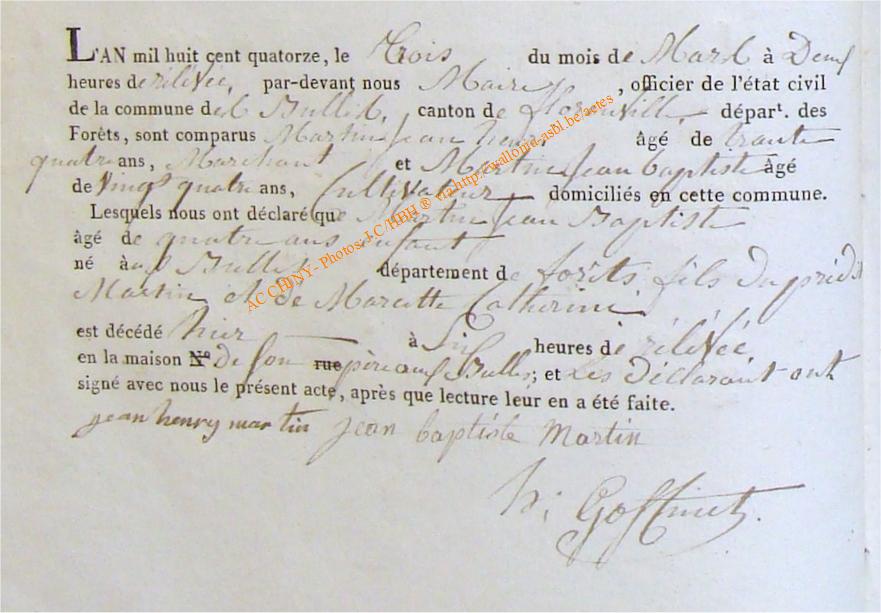 L'AN mil huit cent quatorze, le Trois du mois de Mars à Deux
heures de rélévée, par-devant nous Maire, officier de l'état civil
de la commune des Bulles, canton de florenville, dépar.t des
Forêts, sont comparus Martin jean henry âgé de trante
quatre ans, Marchant et Martin jean baptiste âgé
de vingt quatre ans, Cultivateur, domiciliés en cette commune.
Lesquels nous ont déclaré que Martin jean Baptiste
âgé de quatre ans enfant
né aux Bulles département de forêts fils du prédit
Martin et de Marcette Catherine
est décédé hier à heures de rélévée,
en la maison N.o De son rue père aux Bulles; et Les Déclarant ont
signé avec nous le présent acte, après que lecture leur en a été faite.
jean henry martin jean baptiste Martin
h; Goffinet.
ACCHINY- Photos J.C/HBH ® via http://wallonia-asbl.be/actes